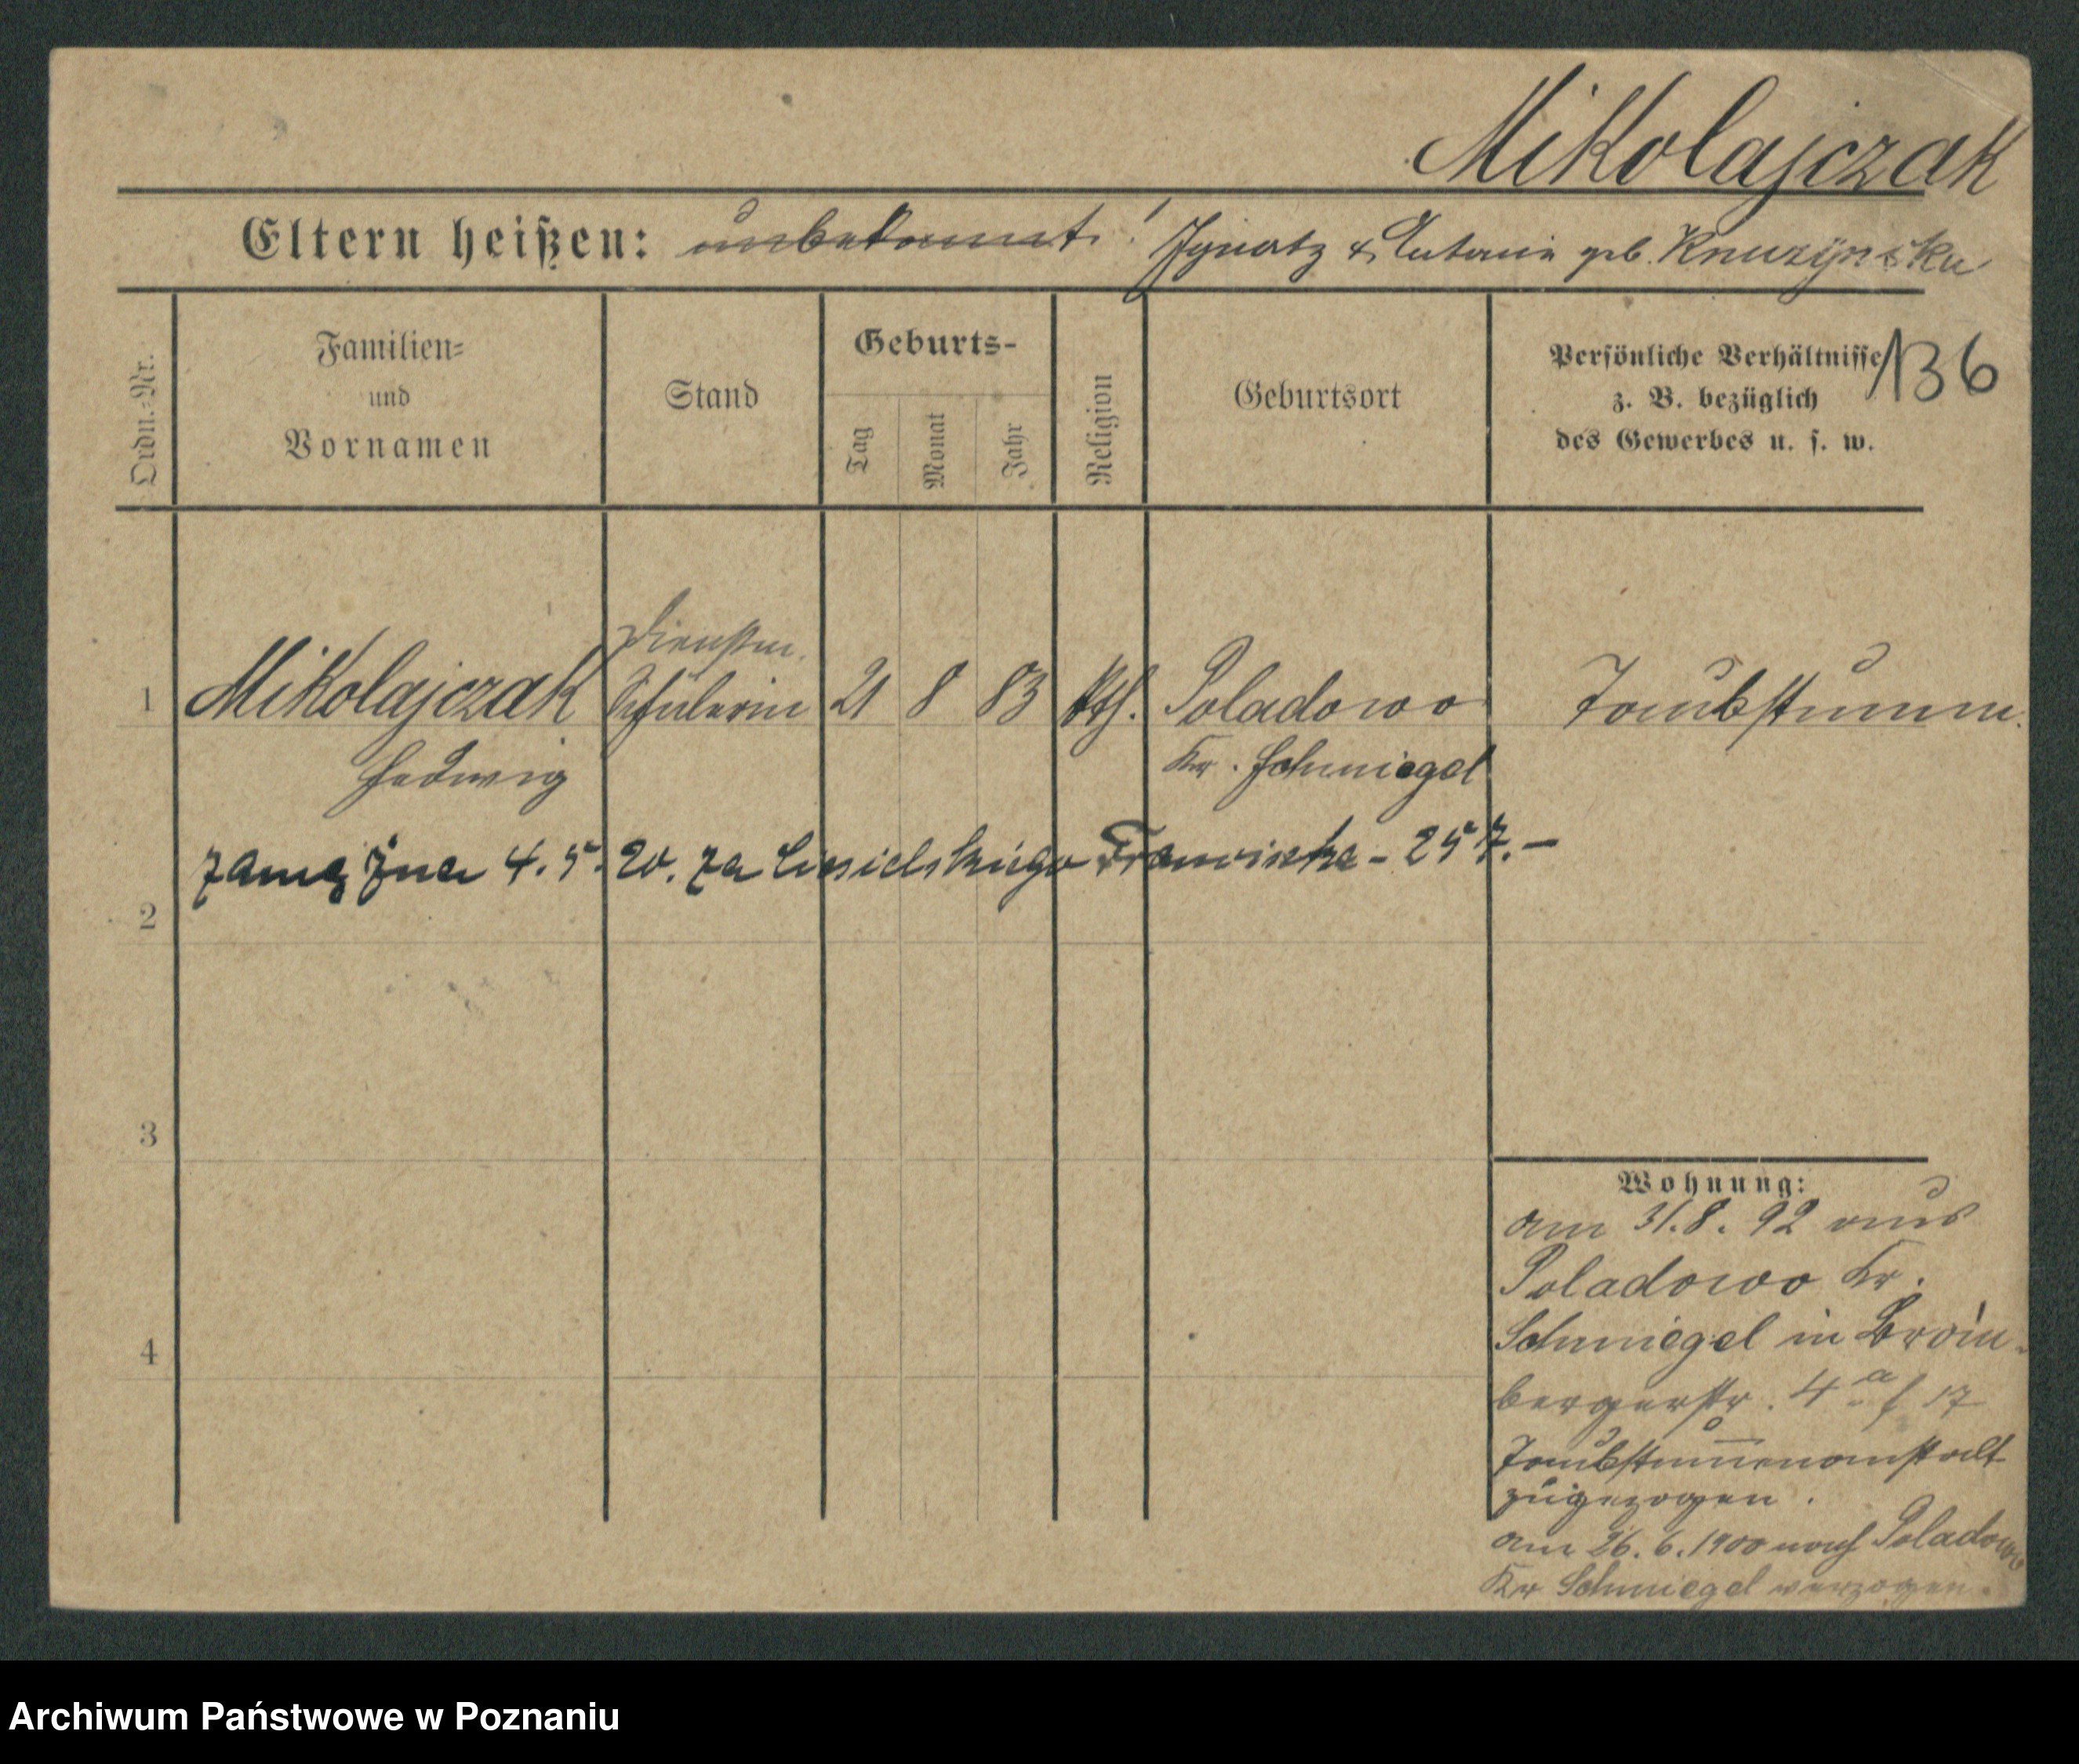 Mikolajczak
Eltern heißen: unbekannt! Ignatz & Antonie geb.
136
Ordn.-Nr.
Familien-
und
Vornamen
Stand
Geburts-
Tag
Monat
Jahr
Religion
Geburtsort
Persönliche Verhältnisse
z. B. bezüglich
des Gewerbes u. s. w.
Dienstm.
1 Mikolajczak Schülerin 21 8 83 kth. Poladowo Taubstumm.
Hedwig Kr. Schmiegel
zamężna 4.5.20. za Ciesielskiego Franciszka - 257.-
2
3
4
Wohnung:
am 31.8.92 aus
Poladowo Kr.
Schmiegel in Brom-
bergerstr. 4a
Taubstum̅enanstalt
zugezogen.
am 26.6.1900 nach Poladowo
Kr Schmiegel verzogen.
Archiwum Państwowe w Poznaniu